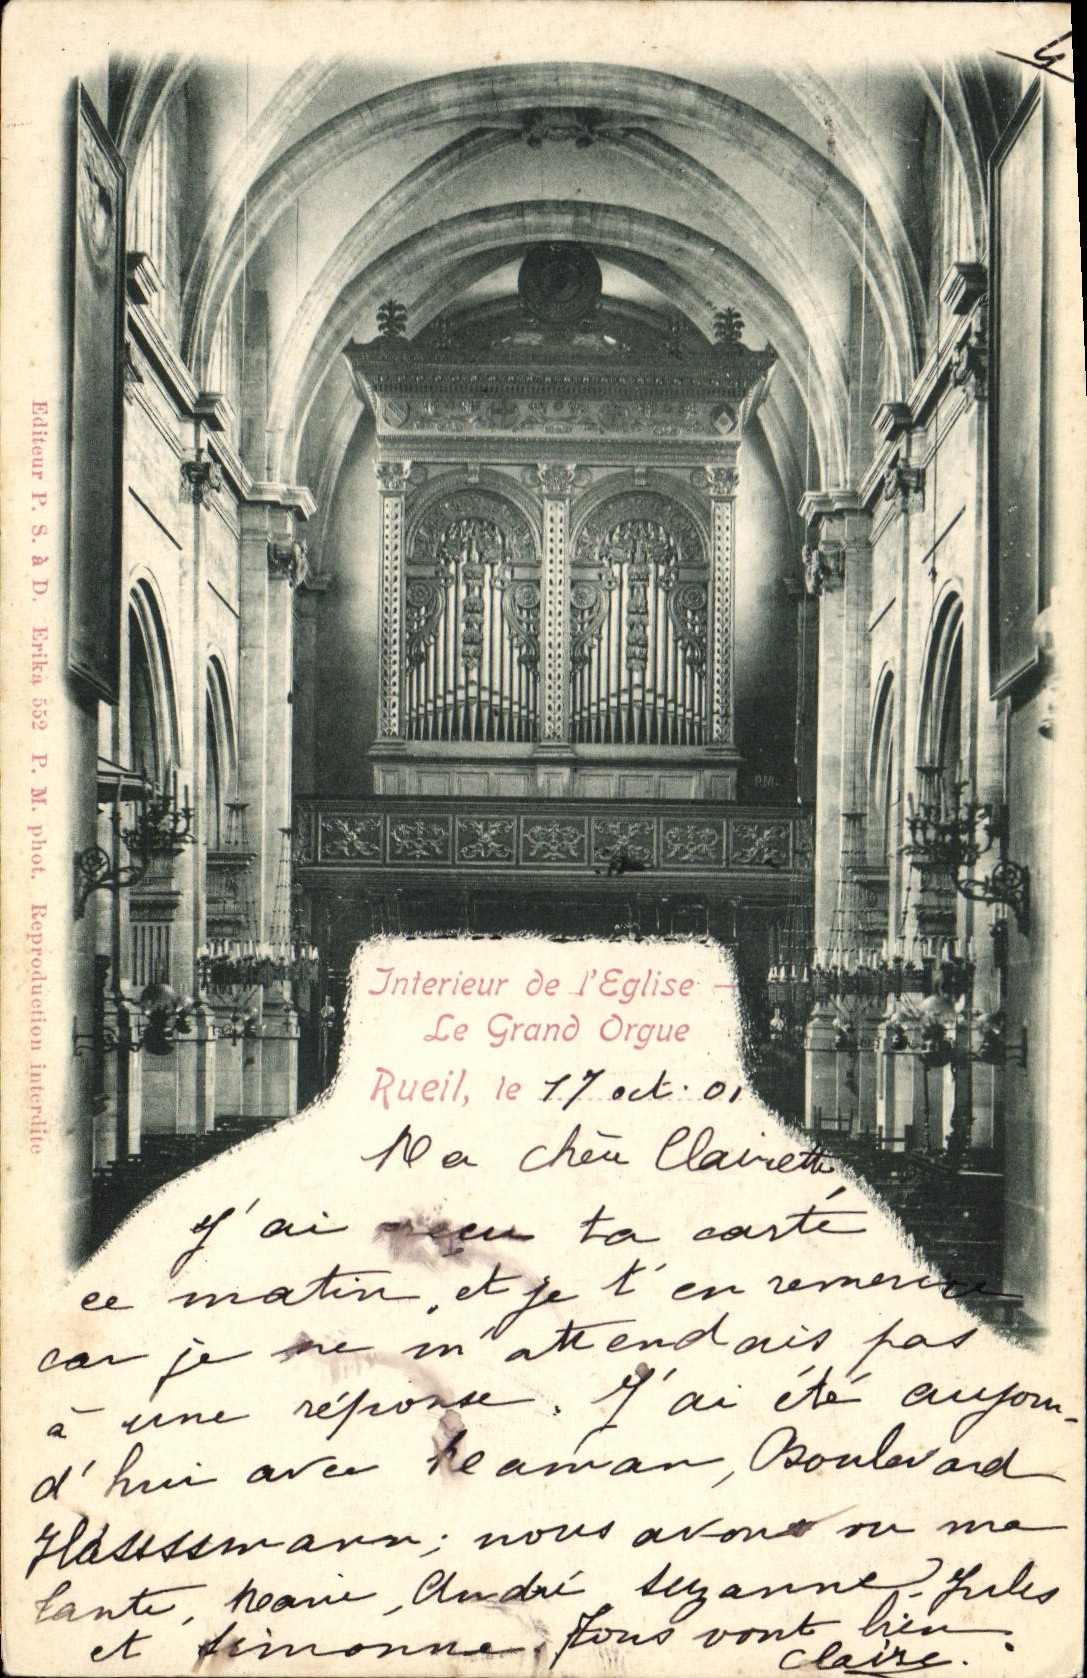 Interieur de l'Eglise –
Le Grand Orgue
Rueil, le 17 oct. 01
Ma chère Clairette
J'ai reçu ta carte
ce matin, et je t'en remercie
car je ne m'attendais pas
à une réponse. J'ai été aujour-
d'hui avec Maman, Boulevard
Haussmann; nous avons vu ma
tante, Marie, André Suzanne, Jules
et Simonne. Tous vont bien.
Claire.
Editeur P. S. à D. Erika 552 P. M. phot. Reproduction interdite
P.M.